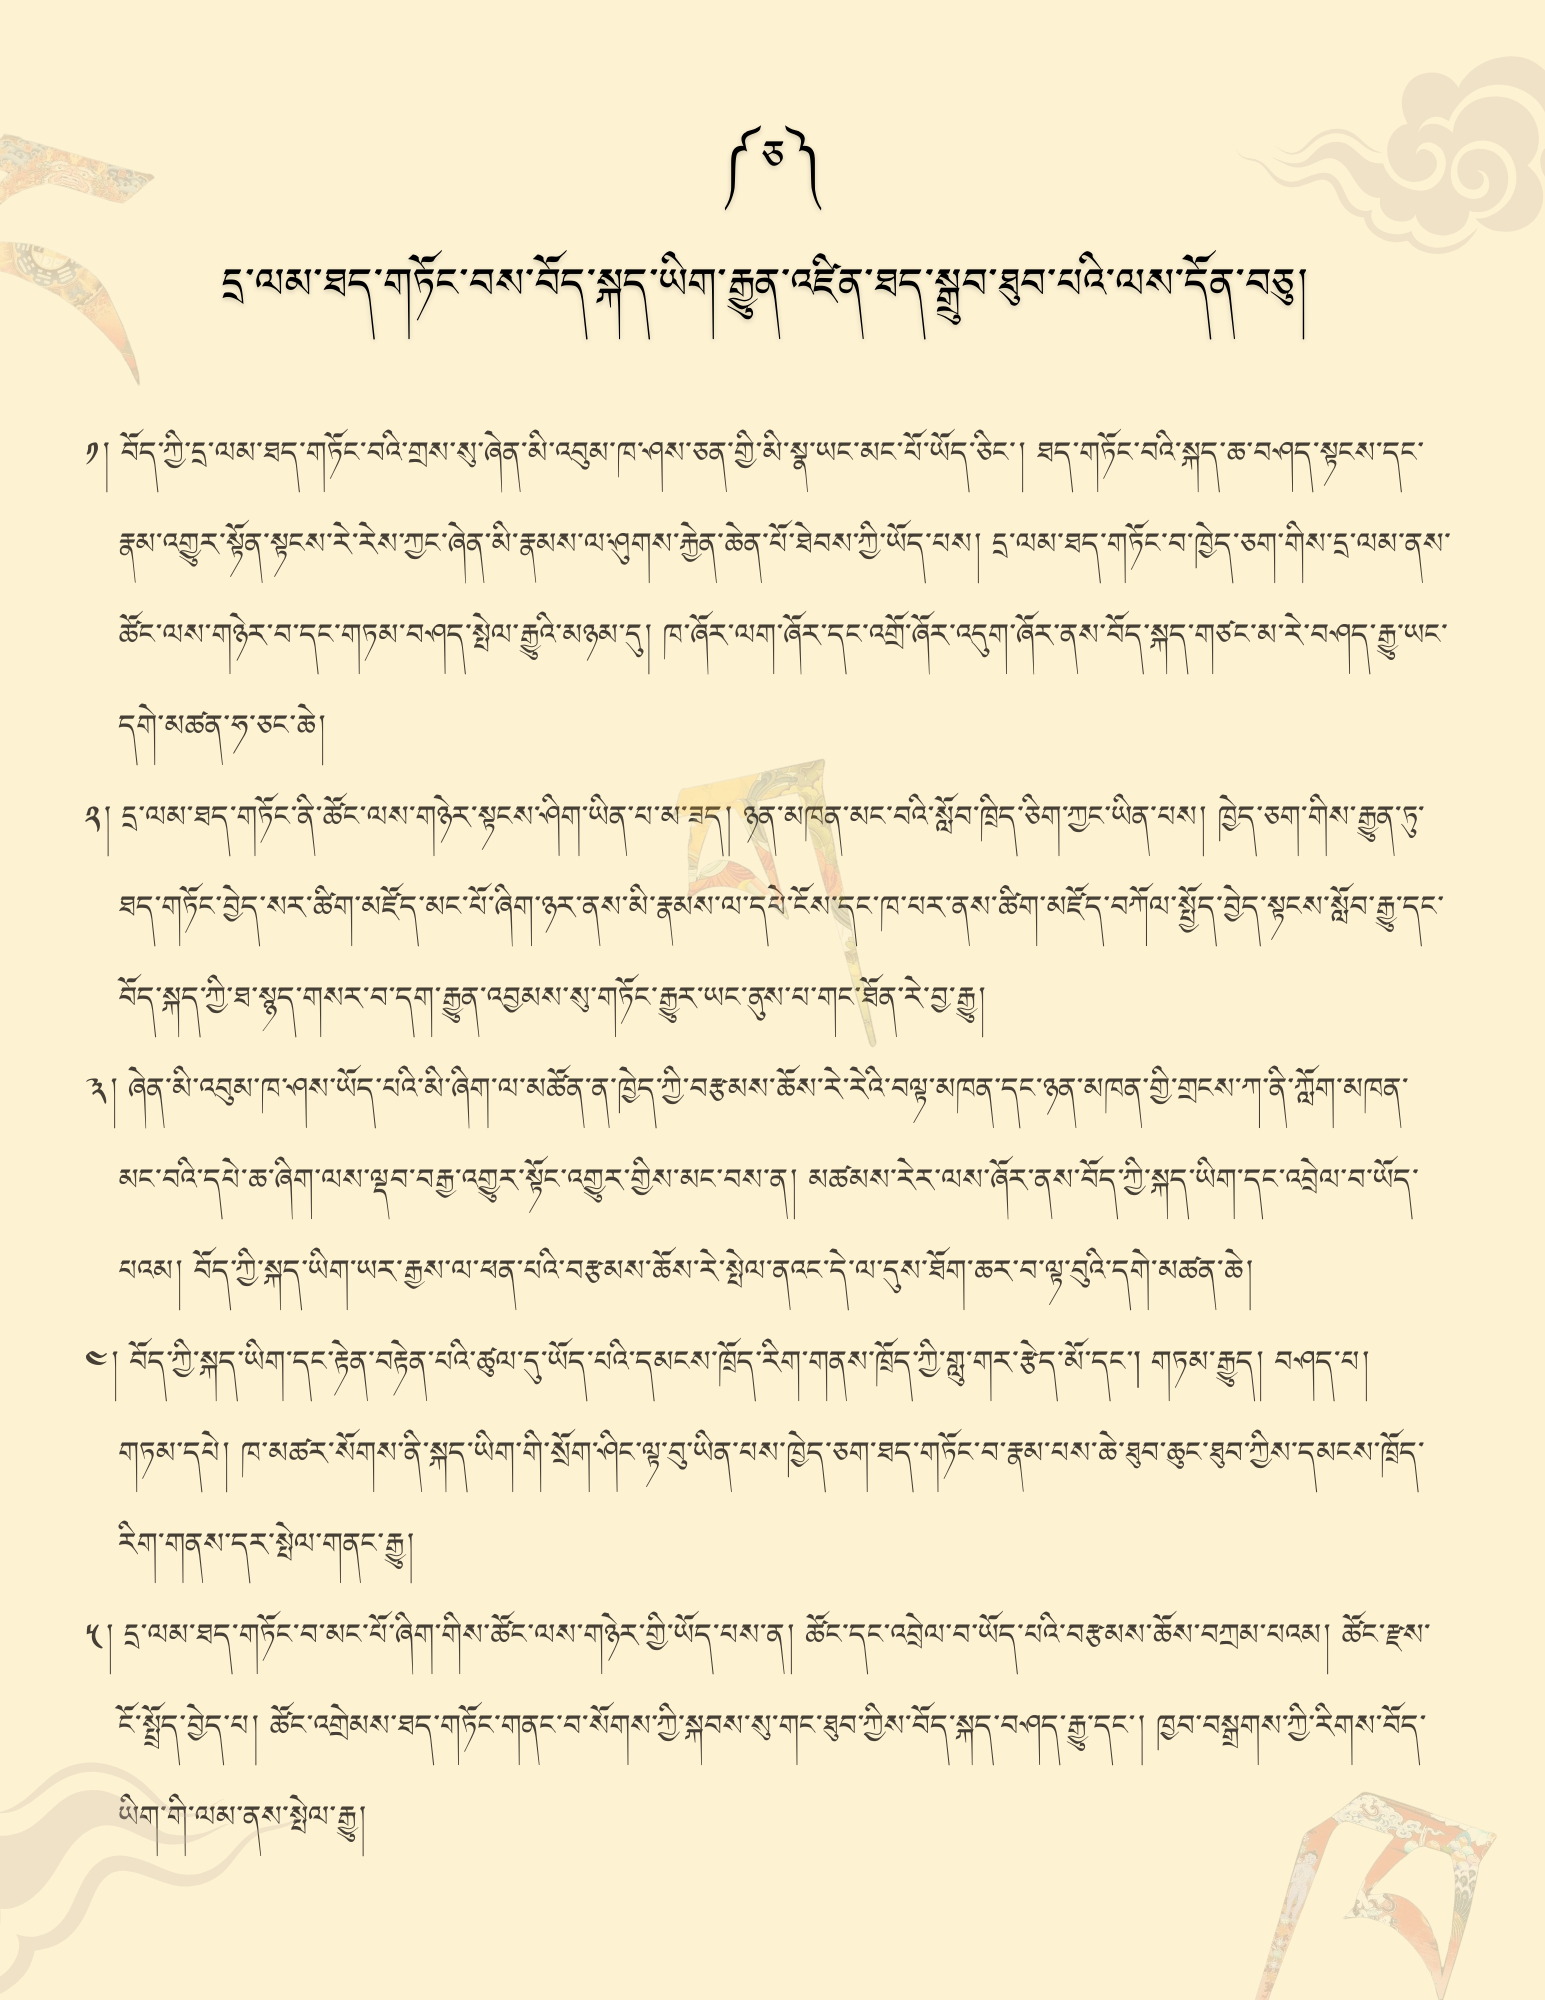 ༼ ཅ ༽
དྲ་ལམ་ཐད་གཏོང་བས་བོད་སྐད་ཡིག་རྒྱུན་འཛིན་ཐད་སྒྲུབ་ཐུབ་པའི་ལས་དོན་བཅུ།
༡། བོད་ཀྱི་དྲ་ལམ་ཐད་གཏོང་བའི་གྲས་སུ་ཞེན་མི་འབུམ་ཁ་ཤས་ཅན་གྱི་མི་སྣ་ཡང་མང་པོ་ཡོད་ཅིང་། ཐད་གཏོང་བའི་སྐད་ཆ་བཤད་སྟངས་དང་
རྣམ་འགྱུར་སྟོན་སྟངས་རེ་རེས་ཀྱང་ཞེན་མི་རྣམས་ལ་ཤུགས་རྐྱེན་ཆེན་པོ་ཐེབས་ཀྱི་ཡོད་པས། དྲ་ལམ་ཐད་གཏོང་བ་ཁྱེད་ཅག་གིས་དྲ་ལམ་ནས་
ཚོང་ལས་གཉེར་བ་དང་གཏམ་བཤད་སྤེལ་རྒྱུའི་མཉམ་དུ། ཁ་ཞོར་ལག་ཞོར་དང་འགྲོ་ཞོར་འདུག་ཞོར་ནས་བོད་སྐད་གཙང་མ་རེ་བཤད་རྒྱུ་ཡང་
དགེ་མཚན་ཧ་ཅང་ཆེ།
༢། དྲ་ལམ་ཐད་གཏོང་ནི་ཚོང་ལས་གཉེར་སྟངས་ཤིག་ཡིན་པ་མ་ཟད། ཉན་མཁན་མང་བའི་སློབ་ཁྲིད་ཅིག་ཀྱང་ཡིན་པས། ཁྱེད་ཅག་གིས་རྒྱུན་ཏུ་
ཐད་གཏོང་བྱེད་སར་ཚིག་མཛོད་མང་པོ་ཞིག་ཉར་ནས་མི་རྣམས་ལ་དཔེ་ངོས་དང་ཁ་པར་ནས་ཚིག་མཛོད་བཀོལ་སྤྱོད་བྱེད་སྟངས་སློབ་རྒྱུ་དང་
བོད་སྐད་ཀྱི་ཐ་སྙད་གསར་བ་དག་རྒྱུན་འབྱམས་སུ་གཏོང་རྒྱུར་ཡང་ནུས་པ་གང་ཐོན་རེ་བྱ་རྒྱུ།
༣། ཞེན་མི་འབུམ་ཁ་ཤས་ཡོད་པའི་མི་ཞིག་ལ་མཚོན་ན་ཁྱེད་ཀྱི་བརྩམས་ཆོས་རེ་རེའི་བལྟ་མཁན་དང་ཉན་མཁན་གྱི་གྲངས་ཀ་ནི་ཀློག་མཁན་
མང་བའི་དཔེ་ཆ་ཞིག་ལས་ལྡབ་བརྒྱ་འགྱུར་སྟོང་འགྱུར་གྱིས་མང་བས་ན། མཚམས་རེར་ལས་ཞོར་ནས་བོད་ཀྱི་སྐད་ཡིག་དང་འབྲེལ་བ་ཡོད་
པའམ། བོད་ཀྱི་སྐད་ཡིག་ཡར་རྒྱས་ལ་ཕན་པའི་བརྩམས་ཆོས་རེ་སྤེལ་ནའང་དེ་ལ་དུས་ཐོག་ཆར་བ་ལྟ་བུའི་དགེ་མཚན་ཆེ།
༤། བོད་ཀྱི་སྐད་ཡིག་དང་རྟེན་བརྟེན་པའི་ཚུལ་དུ་ཡོད་པའི་དམངས་ཁྲོད་རིག་གནས་ཁྲོད་ཀྱི་གླུ་གར་རྩེད་མོ་དང་། གཏམ་རྒྱུད། བཤད་པ།
གཏམ་དཔེ། ཁ་མཚར་སོགས་ནི་སྐད་ཡིག་གི་སྲོག་ཤིང་ལྟ་བུ་ཡིན་པས་ཁྱེད་ཅག་ཐད་གཏོང་བ་རྣམ་པས་ཆེ་ཐུབ་ཆུང་ཐུབ་ཀྱིས་དམངས་ཁྲོད་
རིག་གནས་དར་སྤེལ་གནང་རྒྱུ།
༥། དྲ་ལམ་ཐད་གཏོང་བ་མང་པོ་ཞིག་གིས་ཚོང་ལས་གཉེར་གྱི་ཡོད་པས་ན། ཚོང་དང་འབྲེལ་བ་ཡོད་པའི་བརྩམས་ཆོས་བཀྲམ་པའམ། ཚོང་རྫས་
ངོ་སྤྲོད་བྱེད་པ། ཚོང་འགྲེམས་ཐད་གཏོང་གནང་བ་སོགས་ཀྱི་སྐབས་སུ་གང་ཐུབ་ཀྱིས་བོད་སྐད་བཤད་རྒྱུ་དང་། ཁྱབ་བསྒྲགས་ཀྱི་རིགས་བོད་
ཡིག་གི་ལམ་ནས་སྤེལ་རྒྱུ།